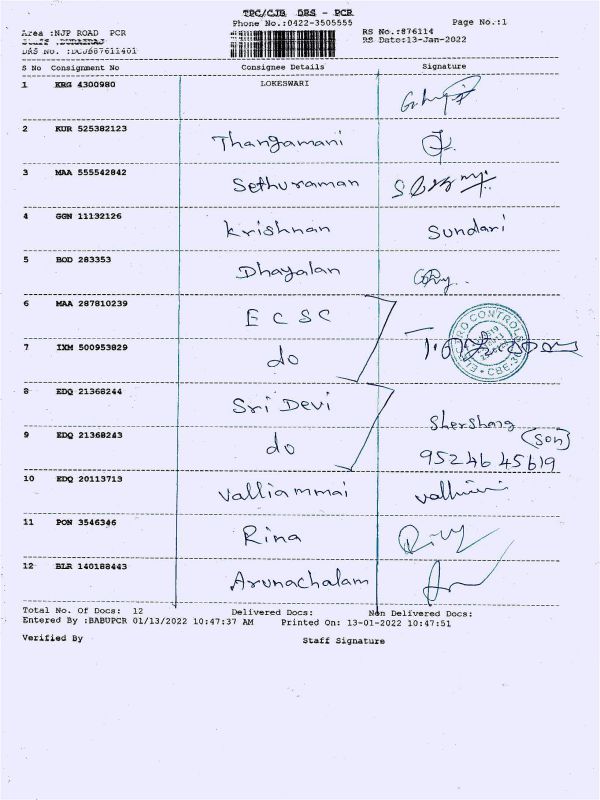 TPC/CJB DRS - PCR
Phone No.:0422-3505555
Page No.:1
Area :NJP ROAD PCR
RS No.:876114
RS Date:13-Jan-2022
DRS No. :DCJB87611401
S No Consignment No Consignee Details Signature
1 KRG 4300980 LOKESWARI
2 KUR 525382123 Thangamani
3 MAA 555542842 Sethuraman
4 GGN 11132126 Krishnan Sundari
5 BOD 283353 Dhayalan
6 MAA 287810239 E C S C
7 IXM 500953829 do
8 EDQ 21368244 Sri Devi
9 EDQ 21368243 do (Son)
95246 45619
10 EDQ 20113713 Valliammai
11 PON 3546346 Rina
12 BLR 140188443 Arunachalam
Total No. Of Docs: 12 Delivered Docs: Non Delivered Docs:
Entered By :BABUPCR 01/13/2022 10:47:37 AM Printed On: 13-01-2022 10:47:51
Verified By Staff Signature